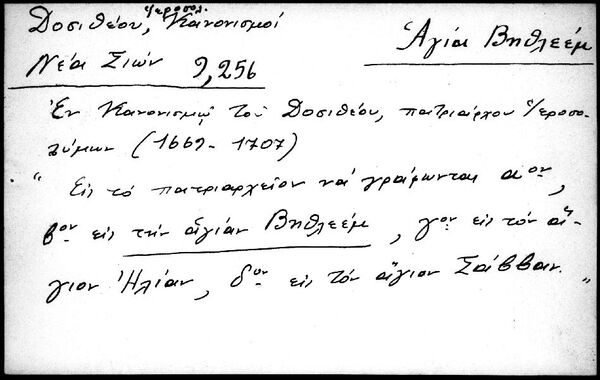 Δοσιθέου, Ἱεροσολ. Κανονισμοί
Ἁγία Βηθλεέμ
Νέα Σιών 9,256
Ἐν Κανονισμῷ τοῦ Δοσιθέου, πατριάρχου Ἱεροσο-
λύμων (1669-1707)
" Εἰς τό πατριαρχεῖον νά γράφωνται αον,
βον εἰς τήν ἁγίαν Βηθλεέμ, γον εἰς τόν ἅ-
γιον Ἠλίαν, δον εἰς τόν ἅγιον Σάββαν. "